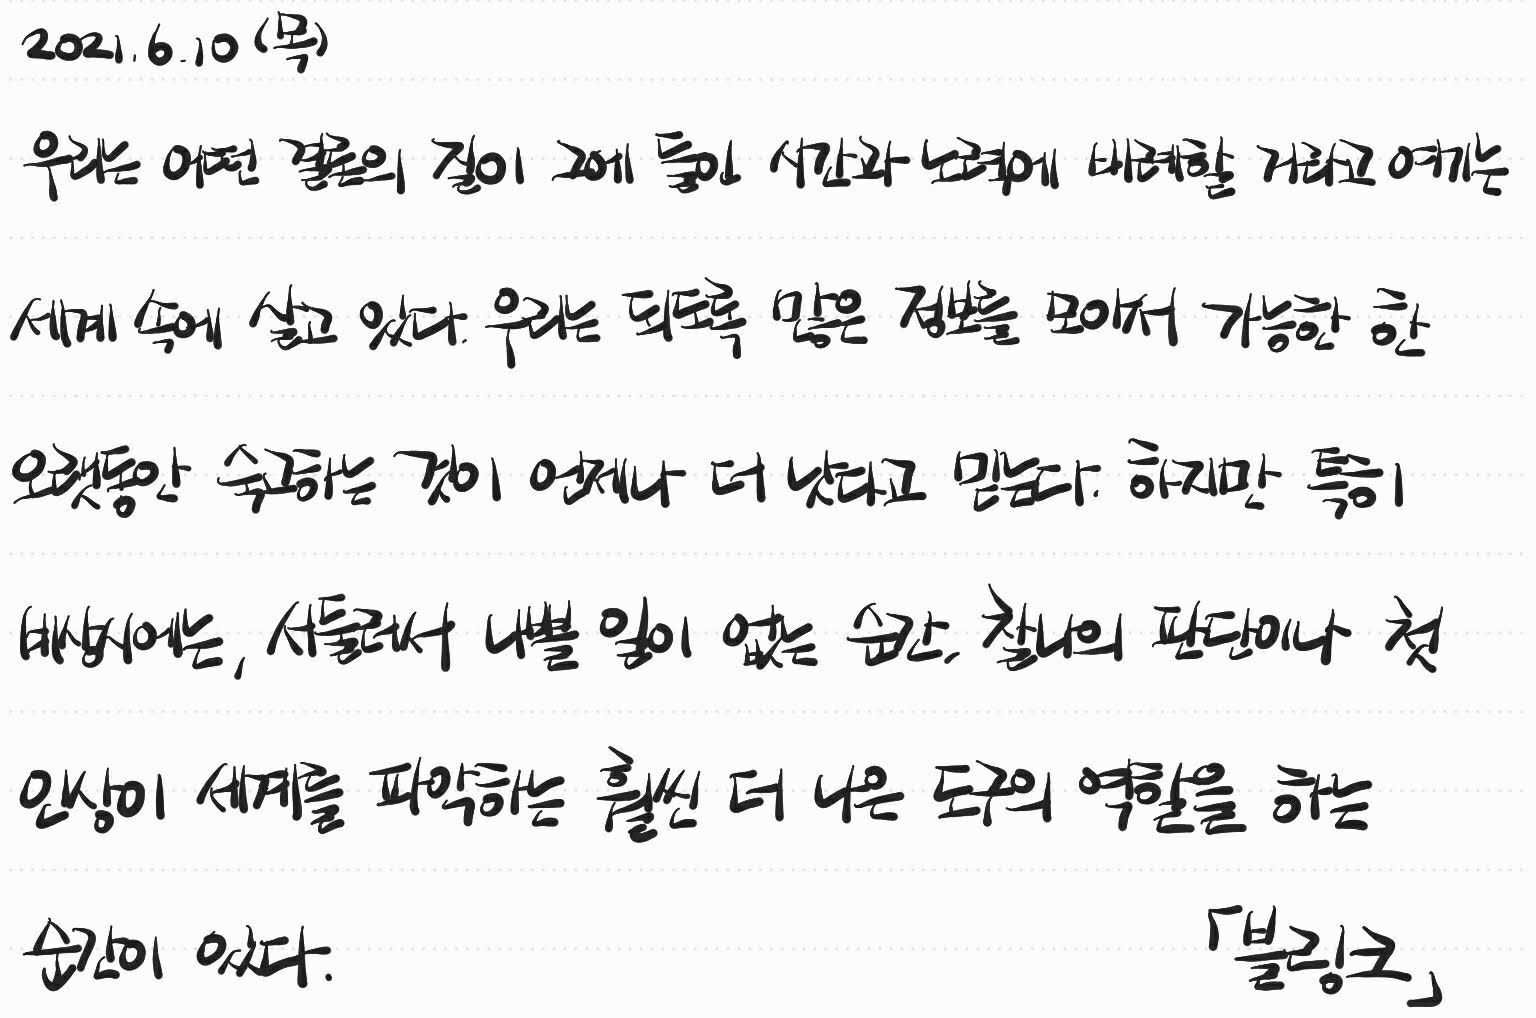 2021.6.10 (목)
우리는 어떤 결론의 질이 그에 들인 시간과 노력에 비례할 거라고 여기는
세계 속에 살고 있다. 우리는 되도록 많은 정보를 모아서 가능한 한
오랫동안 숙고하는 것이 언제나 더 낫다고 믿는다. 하지만 특히
비상시에는, 서둘러서 나쁠 일이 없는 순간, 찰나의 판단이나 첫
인상이 세계를 파악하는 훨씬 더 나은 도구의 역할을 하는
순간이 있다.
「블링크」